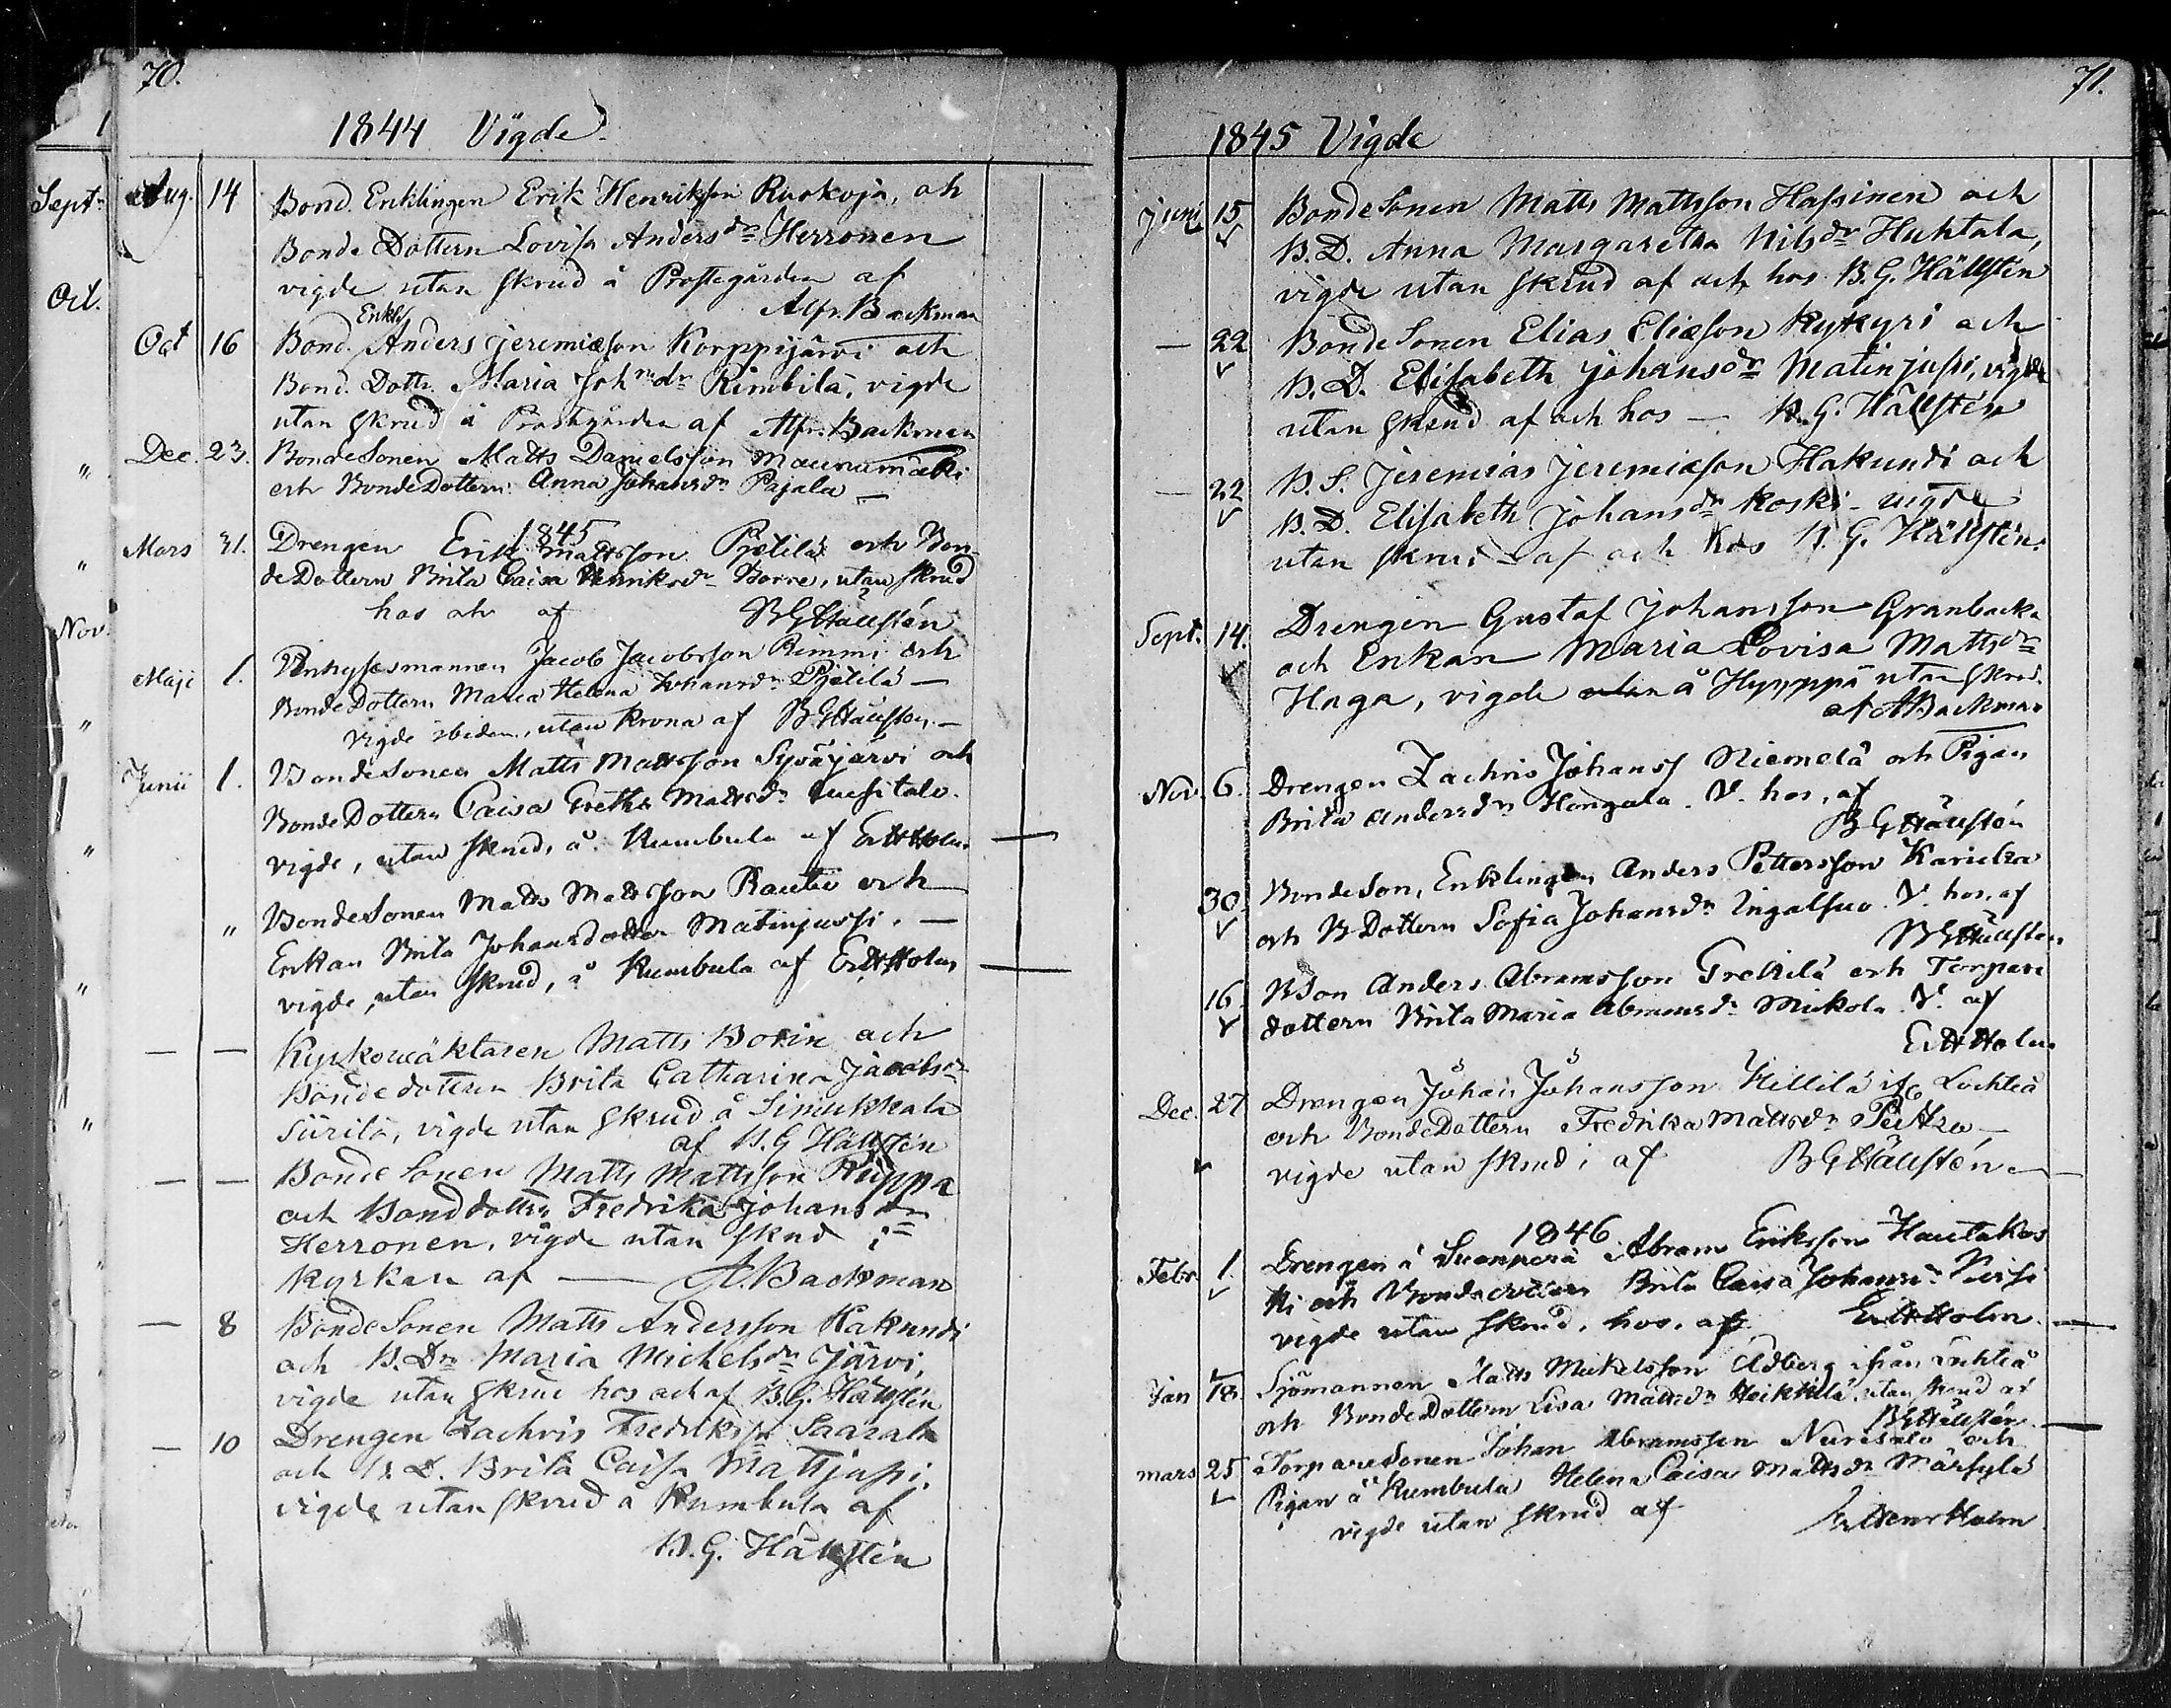 70.
1844 Vigde
Aug. 14 Bond. Enklingen Erik Henriksson Ruskoja, och
Bonde Dottern Lovisa Anders dr Herronen
vigde utan skrud å Prostegården af
Alfr. Backman
Enkl.
Oct 16 Bond. Anders Jeremiæson Korppijärvi och
Bond. Dottr. Maria Joh:n dr Rimbilä, vigde
utan skrud å Prostgården af Alfr. Backman
Dec. 23. BondeSonen Matts Danielsson Maunumäki
och BondeDottern Anna Johansdr Pajala —
1845
Mars 31. Drengen Erik Mattsson Pjetilä och Bon-
deDottern Brita Caisa Henriksdr Borre, utan skrud
hos och af BGHällstén
Maji 1. Jacob Jacobsson Rimmi och
BondeDottern Maria Helena Johansdr Pjetilä —
vigde utan krona af BGHällstén —
Junii 1. BondeSonen Matts Mattsson Syväjärvi och
BondeDottern Caisa Greta Mattsdr
vigde, utan skrud, å Kumbula af ErHHolm —
" BondeSonen Matts Mattsson Rautio och
Enkan Brita Johansdotter Matinjussi. —
vigde, utan skrud, å Kumbula af ErHHolm —
— — Kyrkowäktaren Matts Borin och
Bondedottern Brita Catharina Jacobsdr
Siirilä, vigde utan skrud å Simukkala
af B.G Hällstén
— — Bonde Sonen Matts Mattsson Riippa
och Bonddottn Fredrika Johans dr
Herronen, vigde utan skrud i
kyrkan af — A. Backman
— 8 BondeSonen Matts Andersson Kakundi
och B. Dr Maria Michelsdr Järvi,
vigde utan skrud hos och af B.G. Hällstén
— 10 Drengen Zachris Fredriksn Saarala
och B. D. Brita Caisa Mattjussi,
vigde utan skrud å Kumbula af
B.G. Hällstén
Sept.
Oct.
"
"
Nov.
"
"
"
"
71.
1845 Vigde
Juni 15 BondeSonen Matts Mattsson Hassinen och
B.D. Anna Margaretha Nilsdr Huhtala,
vigde utan skrud af och hos B.G. Hällstén
— 22 BondeSonen Elias Eliæson Kykyri och
B.D. Elisabeth Johansdr Matinjussi, vigde
utan skrud af och hos — B.G. Hällstén
— 22 B.S. Jeremias Jeremiæson Hakundi och
B.D. Elisabeth Johansdr Koski - vigde
utan skrud af och hos B.G. Hällstén.
Sept. 14. Drengen Gustaf Johansson Granbacka
och Enkan Maria Lovisa Mattsdr
Haga, vigde utan å Hyyppä utan skrud
af ABackman
Nov. 6. Drengen Zachris Johanss Niemelä och Pigan
Brita Andersdr Hongala. V. hos, af
BGHällstén
30. BondeSon, Enklingen Anders Pettersson Karicka
och BDottern Sofia Johansdr Ingalsuo V. hos, af
BGHällstén
16. BSon Anders Abramsson Grekilä och Torpare
dottern Brita Maria Abramsdr Mickola V. af
ErHHolm
Dec. 27 Drengen Johan Johansson Hillilä ifr Lochteå
och BondeDottern Fredrika Mattsdr —
vigde utan skrud, af BGHällstén —
1846
Febr. 1. Drengen å Abram Eriksson Hautakos
ki och Brita Caisa Johansdr
vigde utan skrud, hos, af ErHHolm. —
Jan 18. Sjömannen Matts Mickelsson Ådberg ifrån Lochteå
och BondeDottern Lisa Mattsdr Heikkilä, utan skrud af
BGHällstén. —
Mars 25 TorpareSonen Johan Abramsson Nurisalo och
Pigan å Kumbula Helena Caisa Mattsdr Märsylä
vigde utan skrud af ErHenrHolm